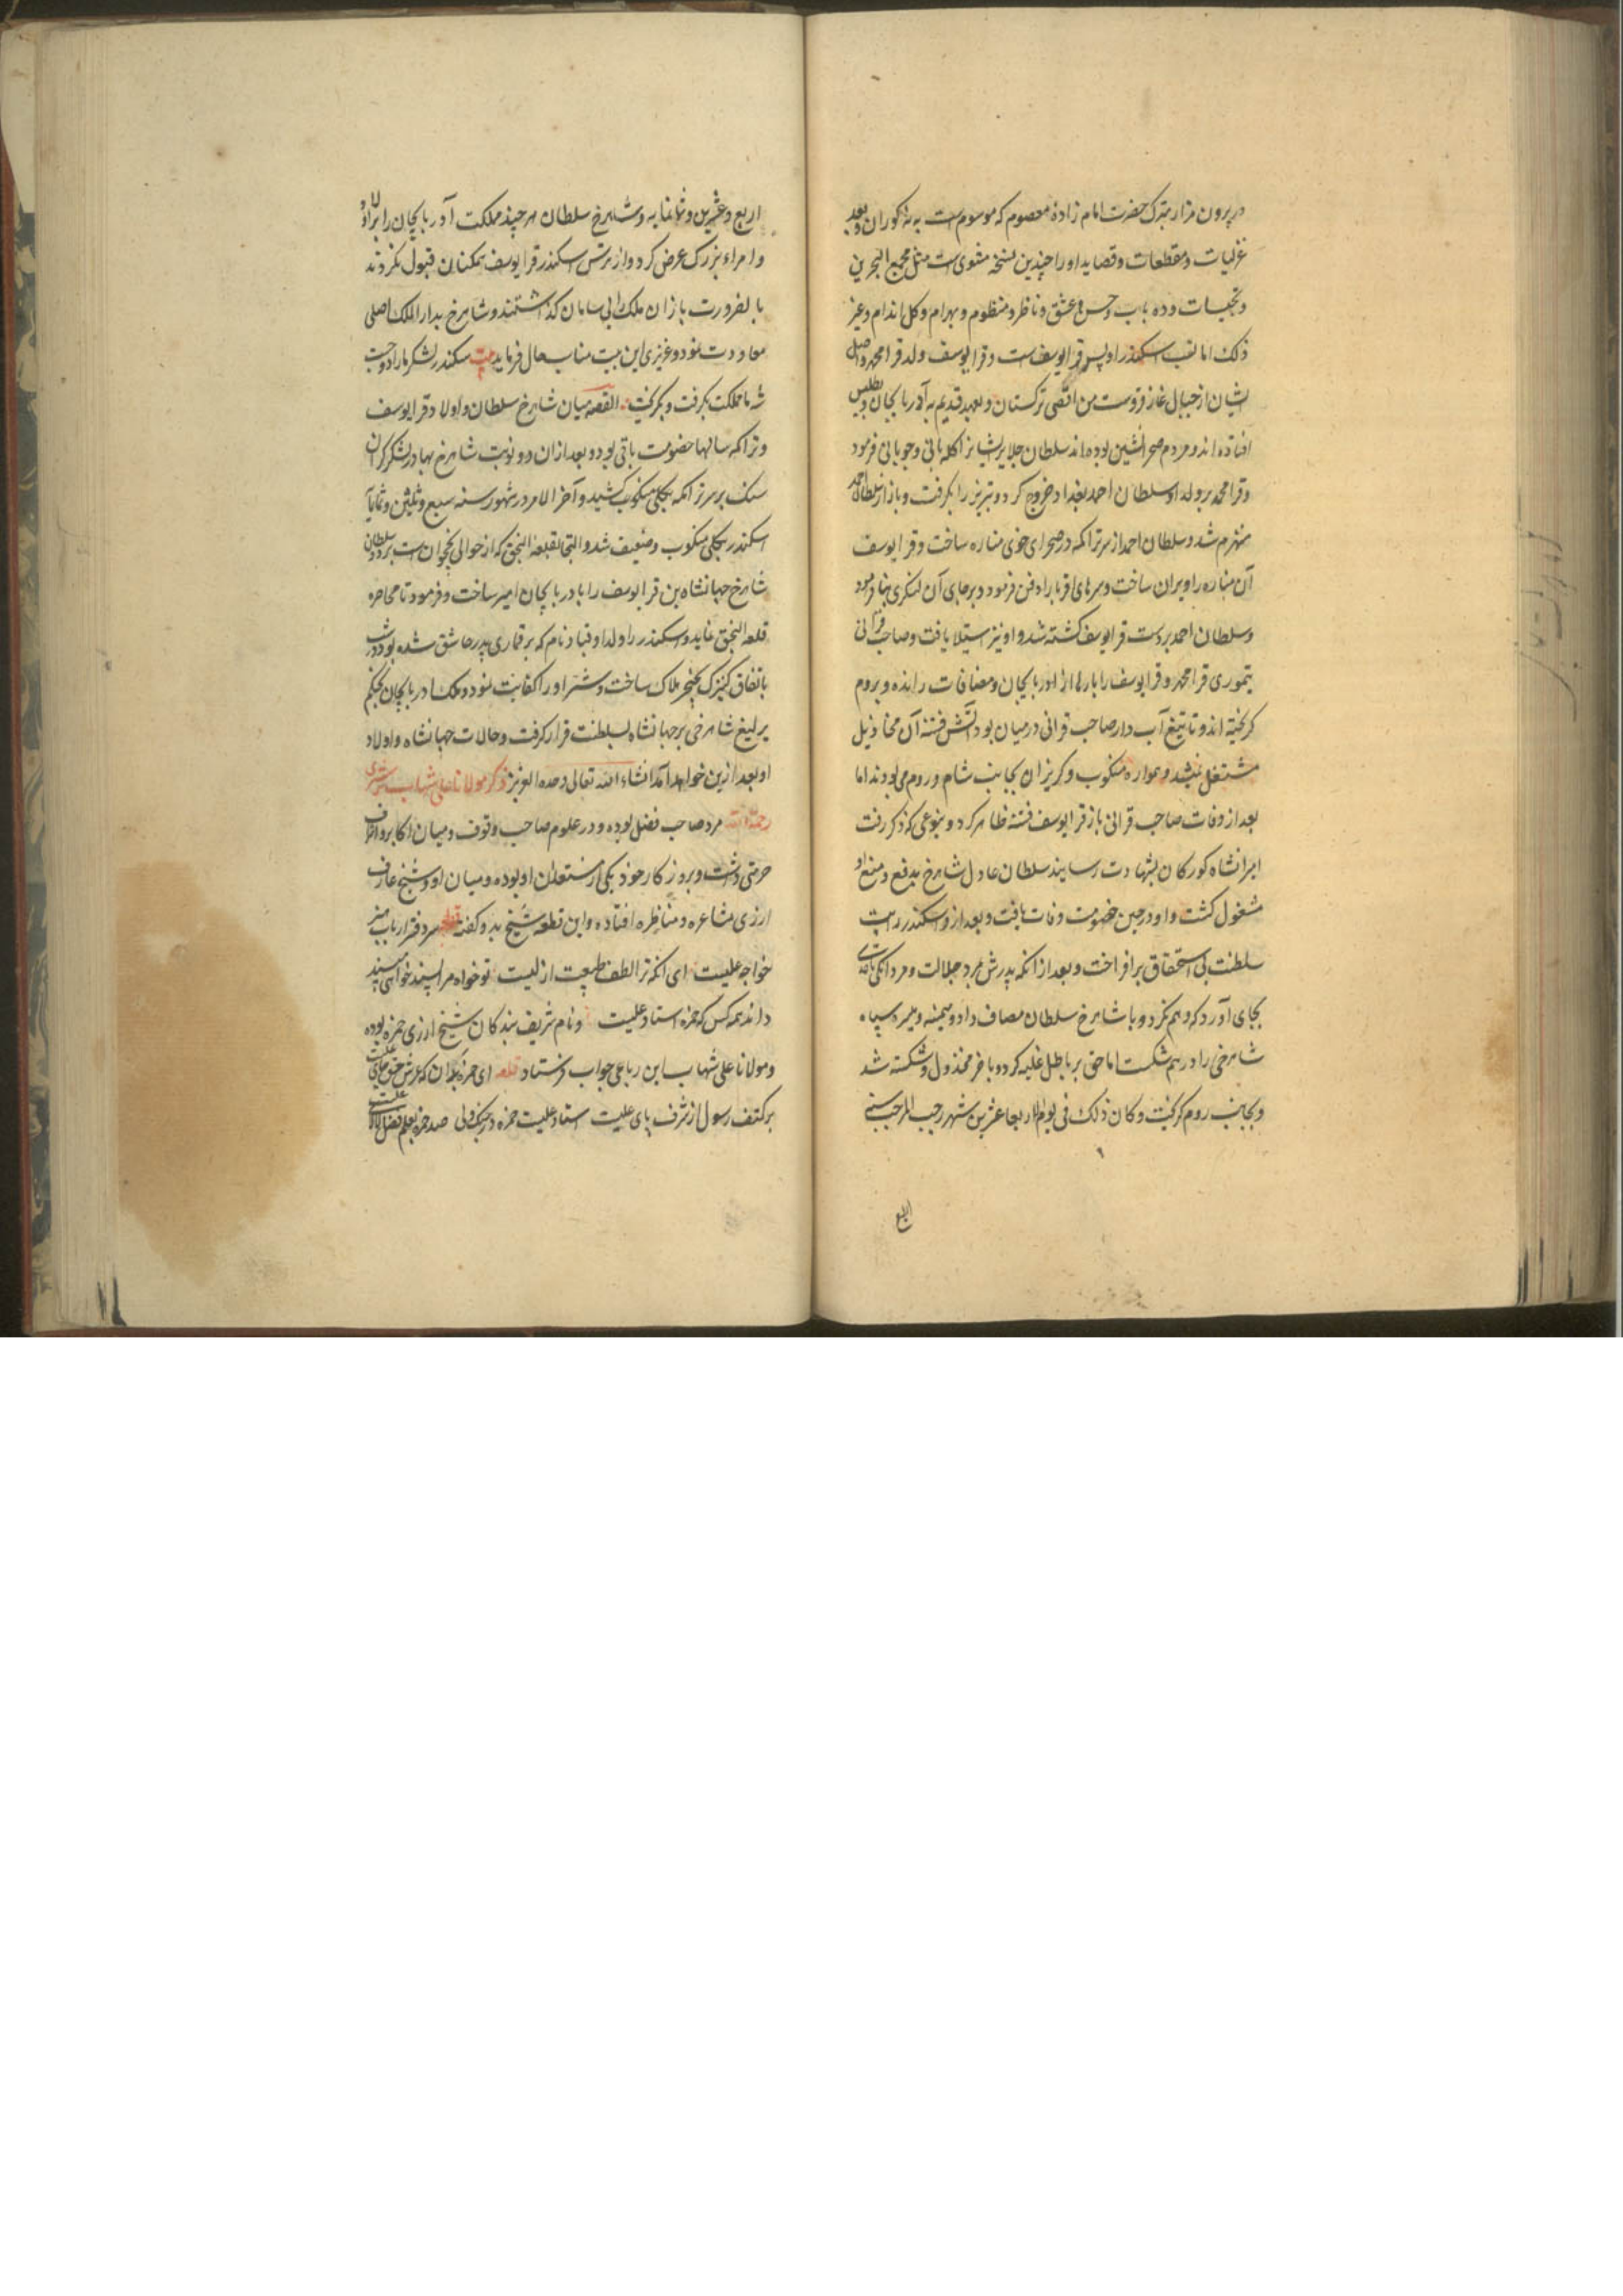 در بیرون مزار متبرک حضرت امام زادهٔ معصوم که موسوم است به نه کوران وبعد
غزلیات ومقطعات وقصاید اورا چندین نسخه مثنوی است مثل مجمع البحرین
وتجنیسات وده باب وحسن وعشق وناظر ومنظور وبهرام وکل اندام وغیر
ذلک اما نسب اسکندر او پسر قرا یوسف ست وقرا یوسف ولد قرا محمد واصل
ایشان از جبال غازقروست من اقصی ترکستان وبعهد قدیم به آدربایجان وبطلیس
افتاده اند ومردم صحرانشین بوده اند سلطان جلایر ایشانرا کله بانی وجوبانی فرمود
وقرا محمد بر ولد او سلطان احمد بغداد خروج کرد وتبریز را بکرفت وباز از سلطان احمد
منهزم شد وسلطان احمد از سر تراکمه در صحرای خوی مناره ساخت وقرا یوسف
آن مناره را ویران ساخت وسرهای اقربا را دفن فرمود وبر جای آن لنکری بنا فرمود
وسلطان احمد بر دست قرا یوسف کشته شد واو نیز استیلا یافت وصاحب قرانی
تیموری قرا محمد وقرا یوسف را بارها از ادربایجان ومضافات رانده وبروم
کریخته اند وتا تیغ آب دار صاحب قرانی درمیان بود آتش فتنه آن مخاذیل
مشتعل نمیشد وهمواره منکوب وکریزان بجانب شام وروم می بودند اما
بعد از وفات صاحب قرانی باز قرا یوسف فتنه ظاهر کرد وبنوعی که ذکر رفت
امیرانشاه کورکان بشهادت رسانید سلطان عادل شاهرخ بدفع ومنع او
مشغول کشت واو درحین خصومت وفات یافت وبعد ازو اسکندر رایت
سلطنت بی استحقاق برافراخت وبعد از آنکه پدرش مرد جلالت ومردانکی
بجای آورد که وهم نکرد وبا شاهرخ سلطان مصاف داد ومیمنه ومیسره سپاه
شاهرخی را درهم شکست اما حق بر باطل غلبه کرد وباخر مخذول وشکسته شد
وبجانب روم کریخت وکان ذلک فی یوم الاربعا عشرین شهر رجب المرجب سنه
اربع
اربع وعشرین وثمانمایه وشاهرخ سلطان هر چند مملکت آدربایجان را باولاد
وامراء بزرک عرض کرد واز ترس اسکندر قرا یوسف همکنان قبول نکردند
بالضرورت باز آن ملک را بی سامان کذاشتند وشاهرخ بدار الملک اصلی
معاودت نمود وعزیزی این بیت مناسب حال فرماید بیت سکندر لشکر مارا زد وجست
شه ما مملکت بکرفت وبکریخت القصه میان شاهرخ سلطان واولاد قرا یوسف
وتراکمه سالها خصومت باقی بود وبعد ازان دو نوبت شاهرخ بهادر لشکر کران
سنک بر سر تراکمه بکلی منکوب کشید وآخر الامر در شهور سنه سبع وثلثین وثمانمایه
اسکندر بکلی منکوب وضعیف شد والتجا بقلعه النجق که از حوالی نخچوان است برد وسلطان
شاهرخ جهانشاه بن قرا یوسف را بادربایجان امیر ساخت وفرمود تا محاصره
قلعه النجق نماید واسکندر را ولد او قباد نام که بر قماری پدر عاشق شده بود در شب
باتفاق کنیزک بخنجر هلاک ساخت وشر او را کفایت نمود وملک ادربایجان بحکم
یرلیغ شاهرخی بر جهانشاه بسلطنت قرار کرفت وحالات جهانشاه واولاد
او بعد ازین خواهد آمد انشاء الله تعالی وحده العزیز ذکر مولانا علی شهاب ترشیزی
رحمة الله مرد صاحب فضل بوده ودر علوم صاحب وقوف ومیان اکابر واشراف
حرمتی داشت وبروزکار خود یکی از مستعدان او بوده ومیان او وشیخ عارف
آزری مشاعره ومناظره افتاده واین قطعه شیخ بدو کفته قطعه سر دفتر ارباب هنر
خواجه علیست ای آنکه ترا لطف طبیعت ازلیست تو خواه مرا پسند خواهی مپسند
داند همه کس که حمزه استاد علیست ونام شریف بندکان شیخ آزری حمزه بوده
ومولانا علی شهاب این رباعی جواب فرستاد قطعه ای حمزه بدان که عرش حق جای علیست
بر کتف رسول از شرف پای علیست استاد علیست حمزه در جنک ولی صد حمزه بعلم وفضل لالای علیست